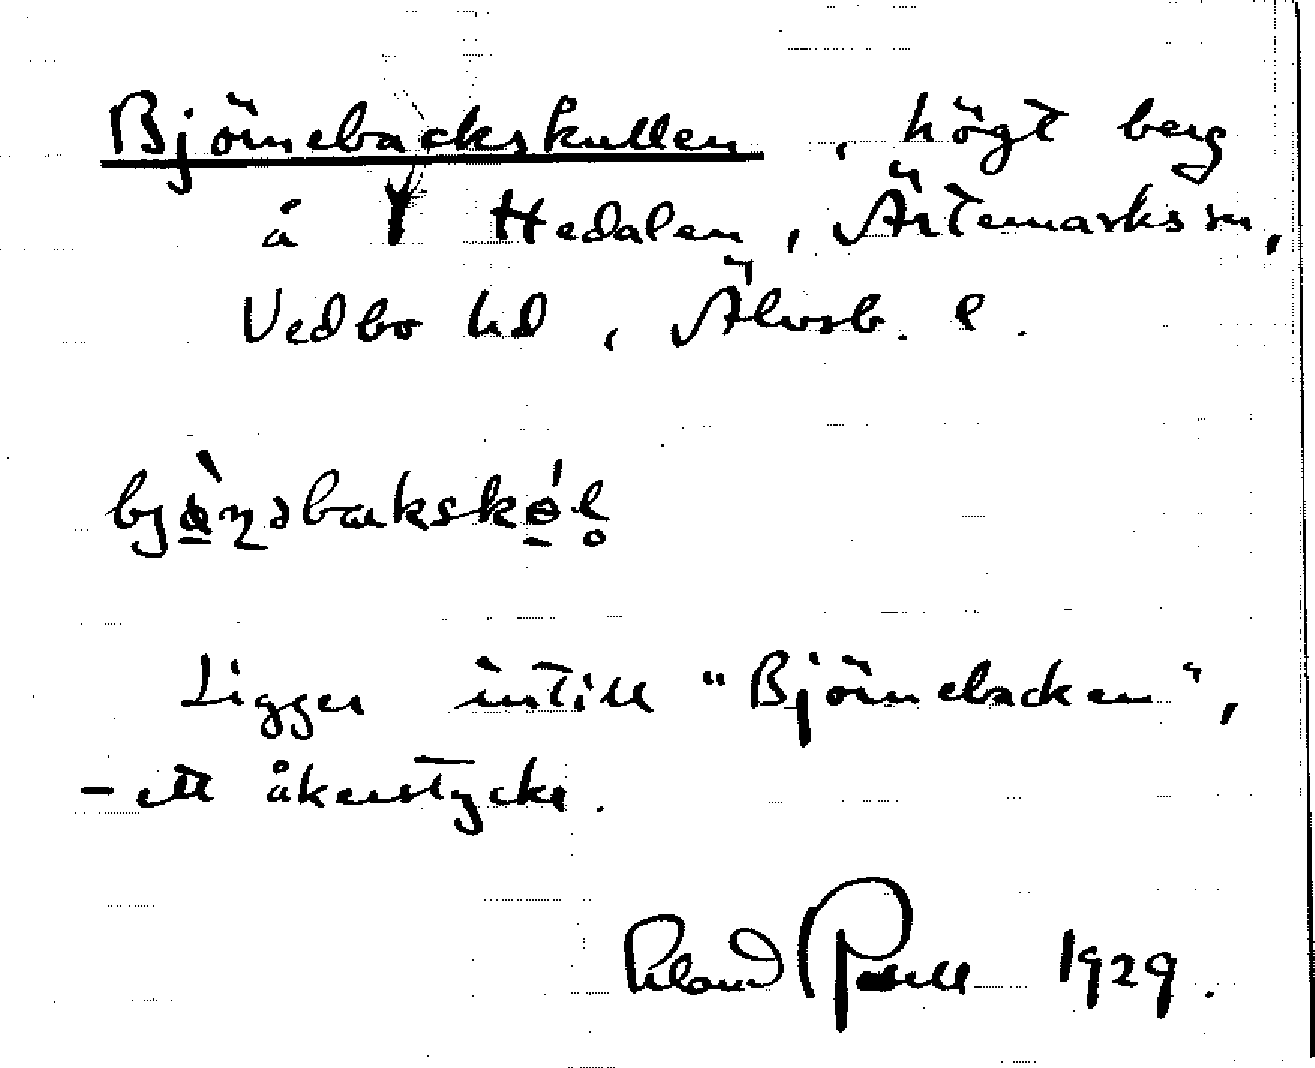 Björnebackskullen, högt berg
å Y Hedalen, Ärtemarks sn,
Vedbo hd, Älvsb. l.
Ligger intill "Björnebacken",
- ett åkerstycke.
1929.